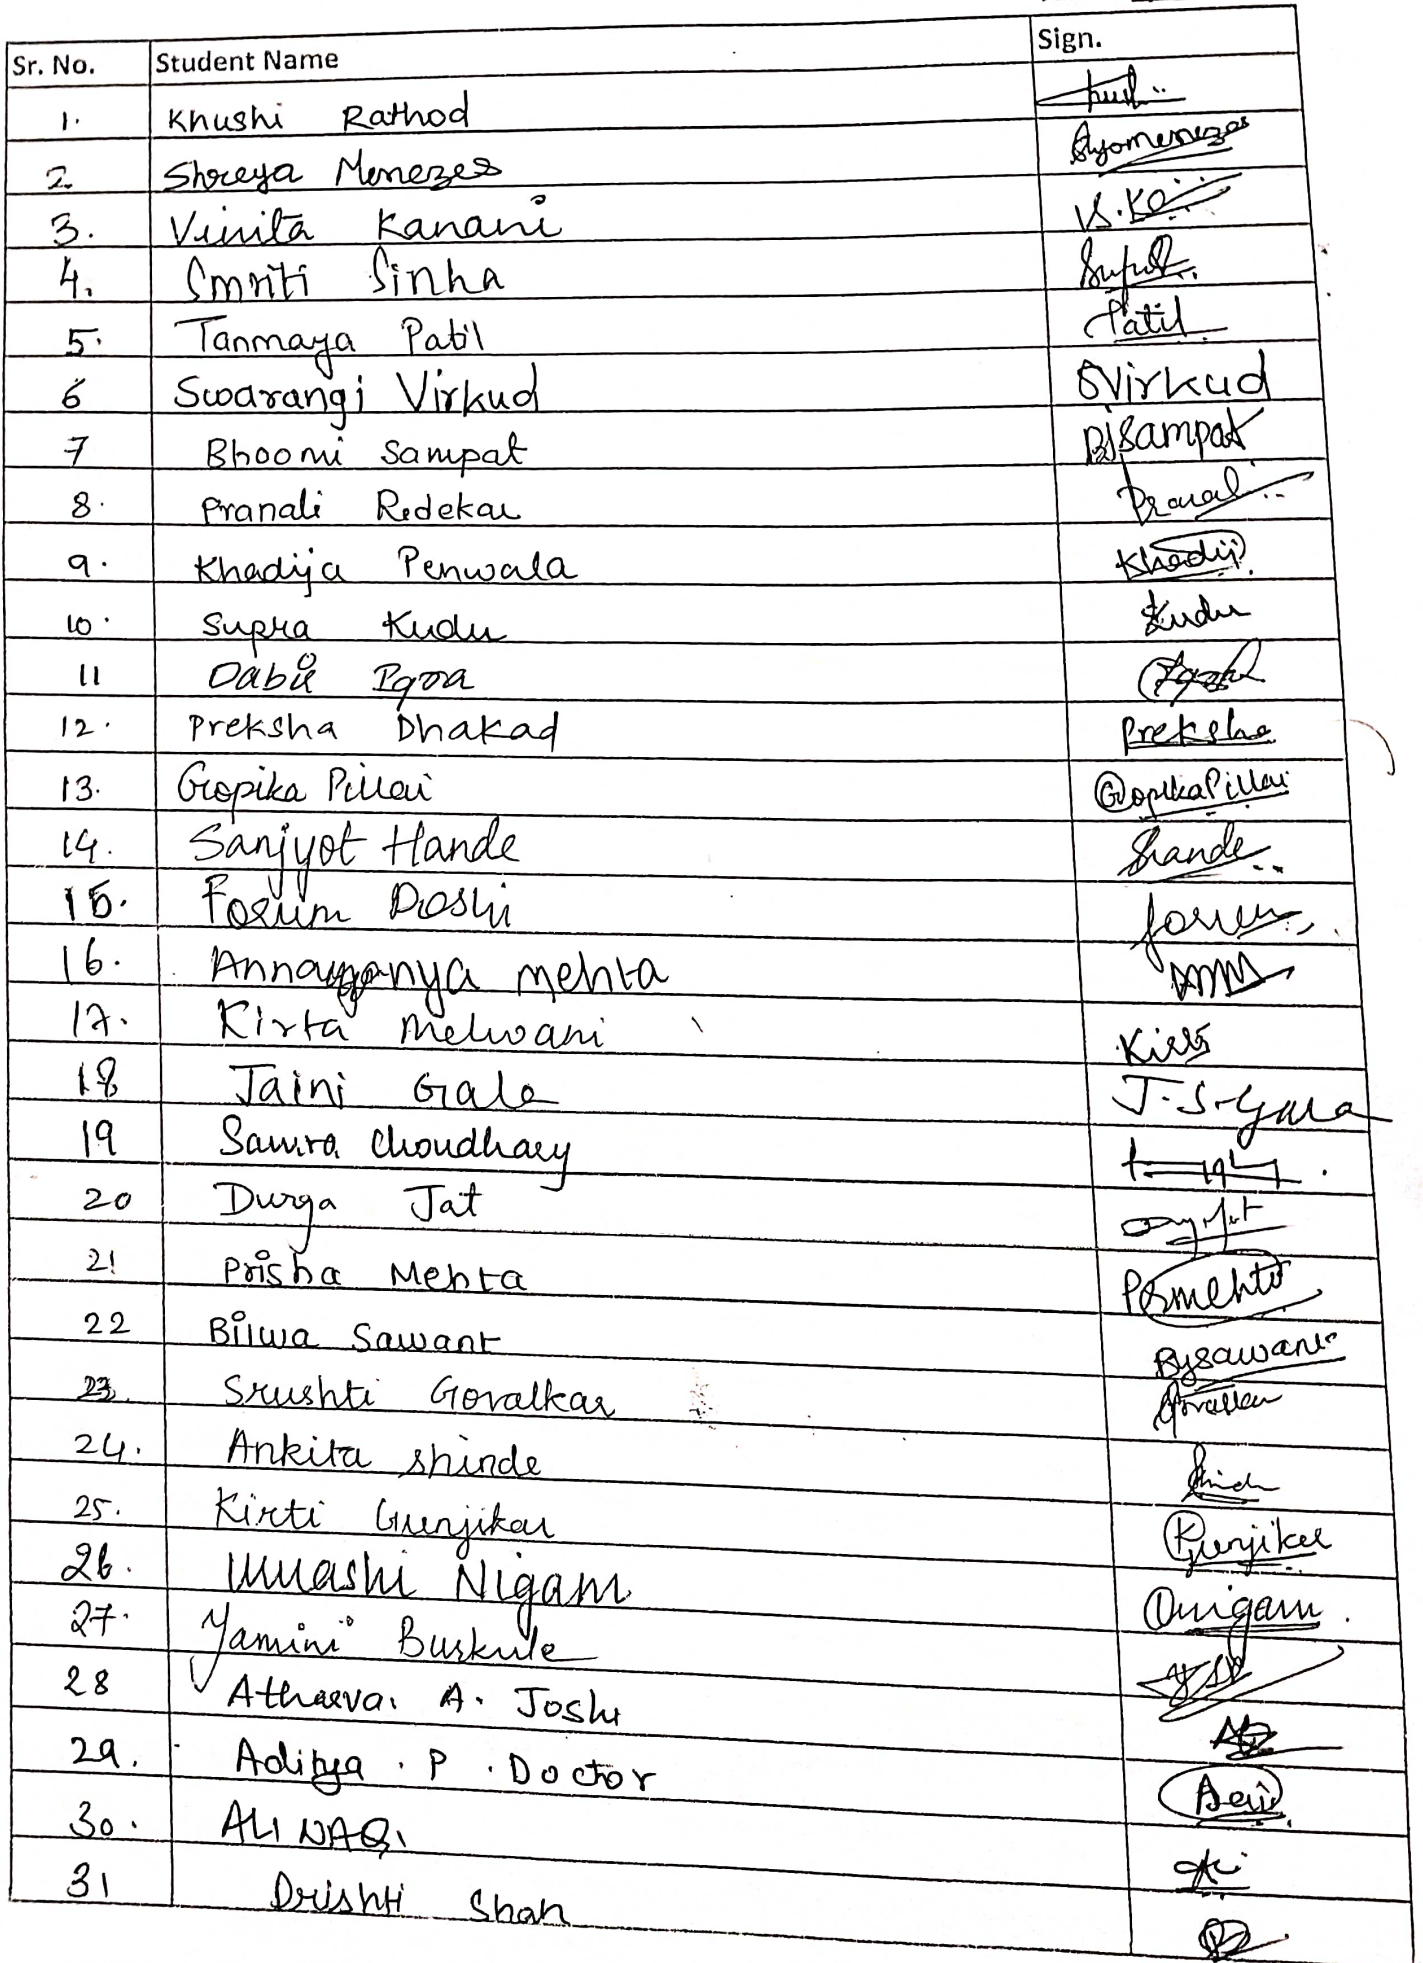 Sr. No. Student Name Sign.
1. Khushi Rathod
2. Shreya Menezes
3. Vinita Kanani V.S.
4. Smriti Sinha
5. Tanmaya Patil Patil
6 Swarangi Virkud SVirkud
7 Bhoomi Sampat BJSampat
8. Pranali Redekar Pranali
9. Khadija Penwala Khadij
10. Supra Kudu Kudu
11
12. Preksha Dhakad Preksha
13. Gopika Pillai Gopika Pillai
14. Sanjyot Hande Shande
15. Forum Doshi Forum
16. Mehta
17. Kirta Melwani
18 Jaini Gala J.S.Gala
19 Choudhary
20 Durga Jat
21 Prisha Mehta PSmehta
22 Bilwa Sawant Bysawant
23. Srushti Govalkar Govalkar
24. Ankita Shinde Shinde
25. Kirti Gunjikar Gunjikar
26. Nigam
27. Yamini Buskule
28 Atharva. A. Joshi
29. Aditya . P . Doctor
30. ALI NAQI
31 Drishti Shah